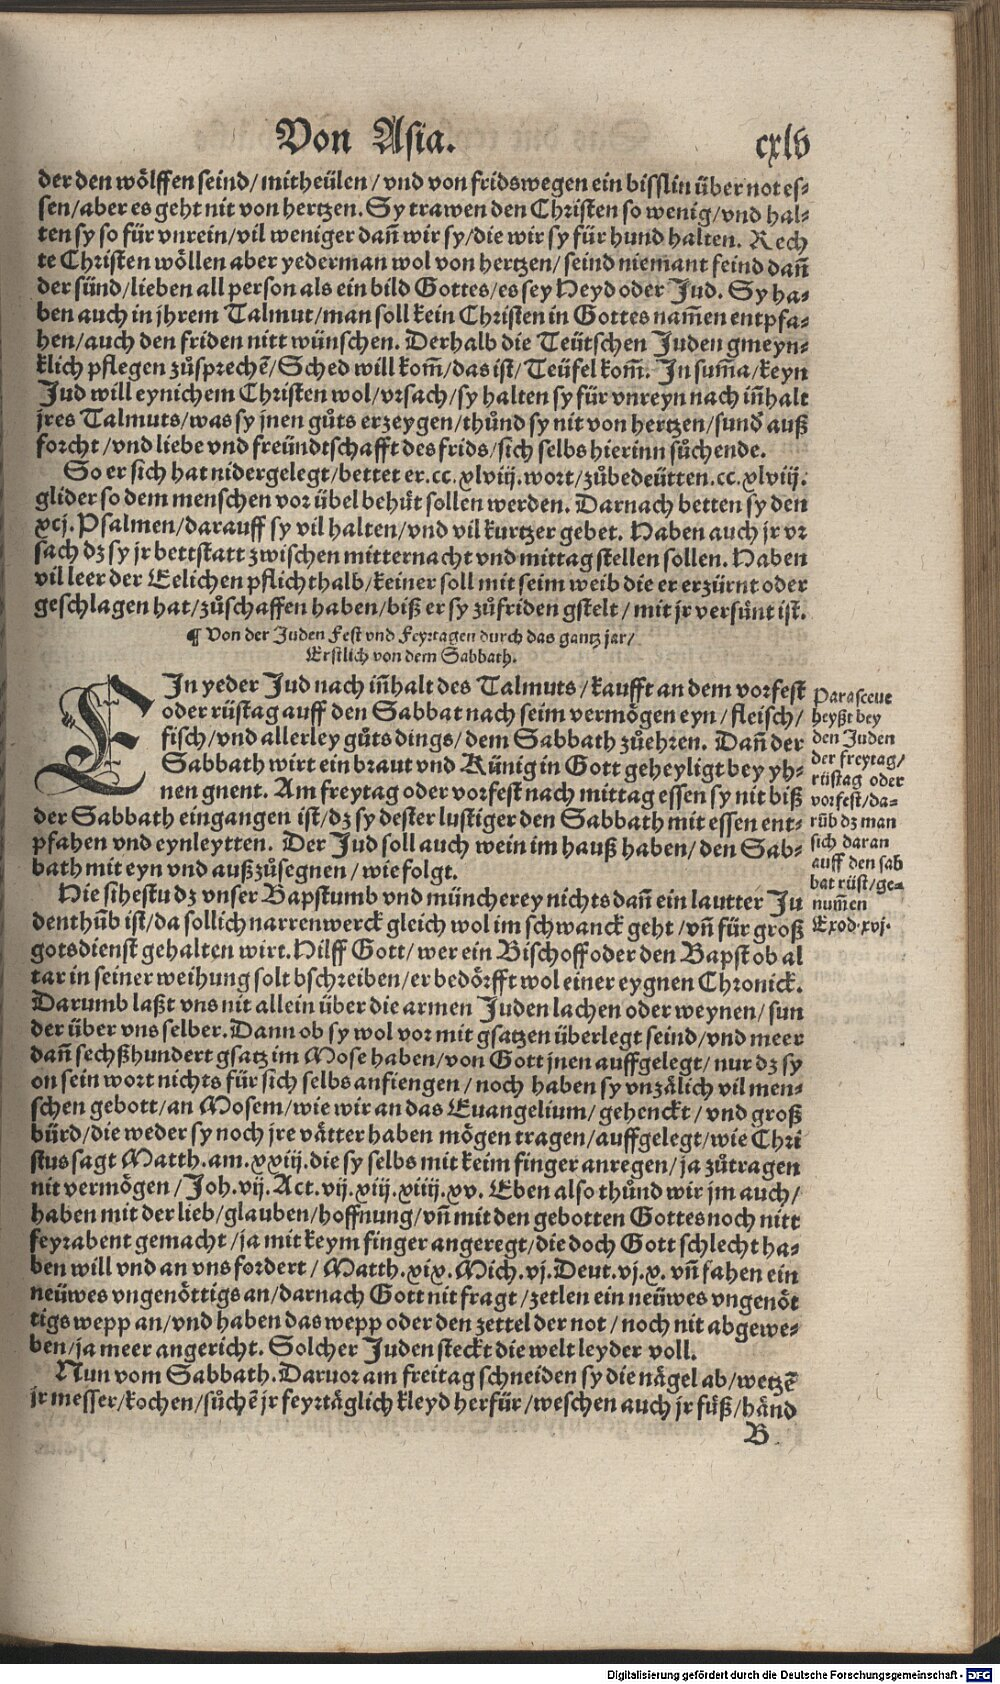 Von Asia.
cxlv
der den wölffen seind/mitheülen/vnd von fridswegen ein bisslin über not es-
sen/aber es geht nit von hertzen. Sy trawen den Christen so wenig/vnd hal-
ten sy so für vnrein/vil weniger dañ wir sy/die wir sy für hund halten. Rech
te Christen wöllen aber yederman wol von hertzen/seind niemant feind dañ
der sünd/lieben all person als ein bild Gottes/es sey Heyd oder Jud. Sy ha-
ben auch in jhrem Talmut/man soll kein Christen in Gottes nam̃en entpfa-
hen/auch den friden nitt wünschen. Derhalb die Teütschen Juden gmeyn-
klich pflegen zůsprechẽ/Sched will kom̃/das ist/Teüfel kom̃. In sum̃a/keyn
Jud will eynichem Christen wol/vrsach/sy halten sy für vnreyn nach iñhalt
jres Talmuts/was sy jnen gůts erzeygen/thůnd sy nit von hertzen/sund̃ auß
forcht/vnd liebe vnd freündtschafft des frids/sich selbs hierinn sůchende.
So er sich hat nidergelegt/bettet er.cc.xlviij.wort/zůbedeütten.cc.xlviij.
glider so dem menschen vor übel behüt sollen werden. Darnach betten sy den
xcj.Psalmen/darauff sy vil halten/vnd vil kurtzer gebet. Haben auch jr vr
sach dz sy jr bettstatt zwischen mitternacht vnd mittag stellen sollen. Haben
vil leer der Eelichen pflicht halb/keiner soll mit seim weib die er erzürnt oder
geschlagen hat/zůschaffen haben/biß er sy zůfriden gstelt/mit jr versünt ist.
¶ Von der Juden Fest vnd Feyrtagen durch das gantz jar/
Erstlich von dem Sabbath.
EIn yeder Jud nach iñhalt des Talmuts/kaufft an dem vorfest
oder rüstag auff den Sabbat nach seim vermögen eyn/fleisch/
fisch/vnd allerley gůts dings/dem Sabbath zůehren. Dañ der
Sabbath wirt ein braut vnd Künig in Gott geheyligt bey yh-
nen gnent. Am freytag oder vorfest nach mittag essen sy nit biß
der Sabbath eingangen ist/dz sy dester lustiger den Sabbath mit essen ent-
pfahen vnd eynleytten. Der Jud soll auch wein im hauß haben/den Sab-
bath mit eyn vnd außzůsegnen/wie folgt.
Parasceue
heyßt bey
den Juden
der freytag/
rüstag oder
vorfest/da-
rüb dz man
sich daran
auff den sab
bat rüst/ge-
num̃en
Exod.xvj.
Hie sihestu dz vnser Bapstumb vnd müncherey nichts dañ ein lautter Ju
denthũb ist/da sollich narrenwerck gleich wol im schwanck geht/vñ für groß
gotsdienst gehalten wirt. Hilff Gott/wer ein Bischoff oder den Bapst ob al
tar in seiner weihung solt bschreiben/er bedörfft wol einer eygnen Chronick.
Darumb laßt vns nit allein über die armen Juden lachen oder weynen/sun
der über vns selber. Dann ob sy wol vor mit gsatzen überlegt seind/vnd meer
dañ sechßhundert gsatz im Mose haben/von Gott jnen auffgelegt/nur dz sy
on sein wort nichts für sich selbs anfiengen/noch haben sy vnzälich vil men-
schen gebott/an Mosem/wie wir an das Euangelium/gehenckt/vnd groß
bürd/die weder sy noch jre vätter haben mögen tragen/auffgelegt/wie Chri
stus sagt Matth.am.xxiij.die sy selbs mit keim finger anregen/ja zůtragen
nit vermögen/Joh.vij.Act.vij.xiij.xiiij.xv. Eben also thůnd wir jm auch/
haben mit der lieb/glauben/hoffnung/vñ mit den gebotten Gottes noch nitt
feyrabent gemacht/ja mit keym finger angeregt/die doch Gott schlecht ha-
ben will vnd an vns fordert/Matth.xix.Mich.vj.Deut.vj.x. vñ fahen ein
neüwes vngenöttigs an/darnach Gott nit fragt/zetlen ein neüwes vngenöt
tigs wepp an/vnd haben das wepp oder den zettel der not/noch nit abgewe-
ben/ja meer angericht. Solcher Juden steckt die welt leyder voll.
Nun vom Sabbath. Daruor am freitag schneiden sy die nägel ab/wetzẽ
jr messer/kochen/sůchẽ jr feyrtäglich kleyd herfür/weschen auch jr füß/händ
B
Digitalisierung gefördert durch die Deutsche Forschungsgemeinschaft - DFG